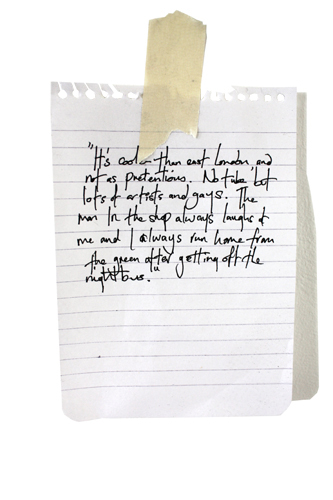 "It's cooler than east london and
not as pretentious. No tube but
lots of artists and gays. The
man in the shop always laughs at
me and I always run home from
the green after getting off the
night bus.
"